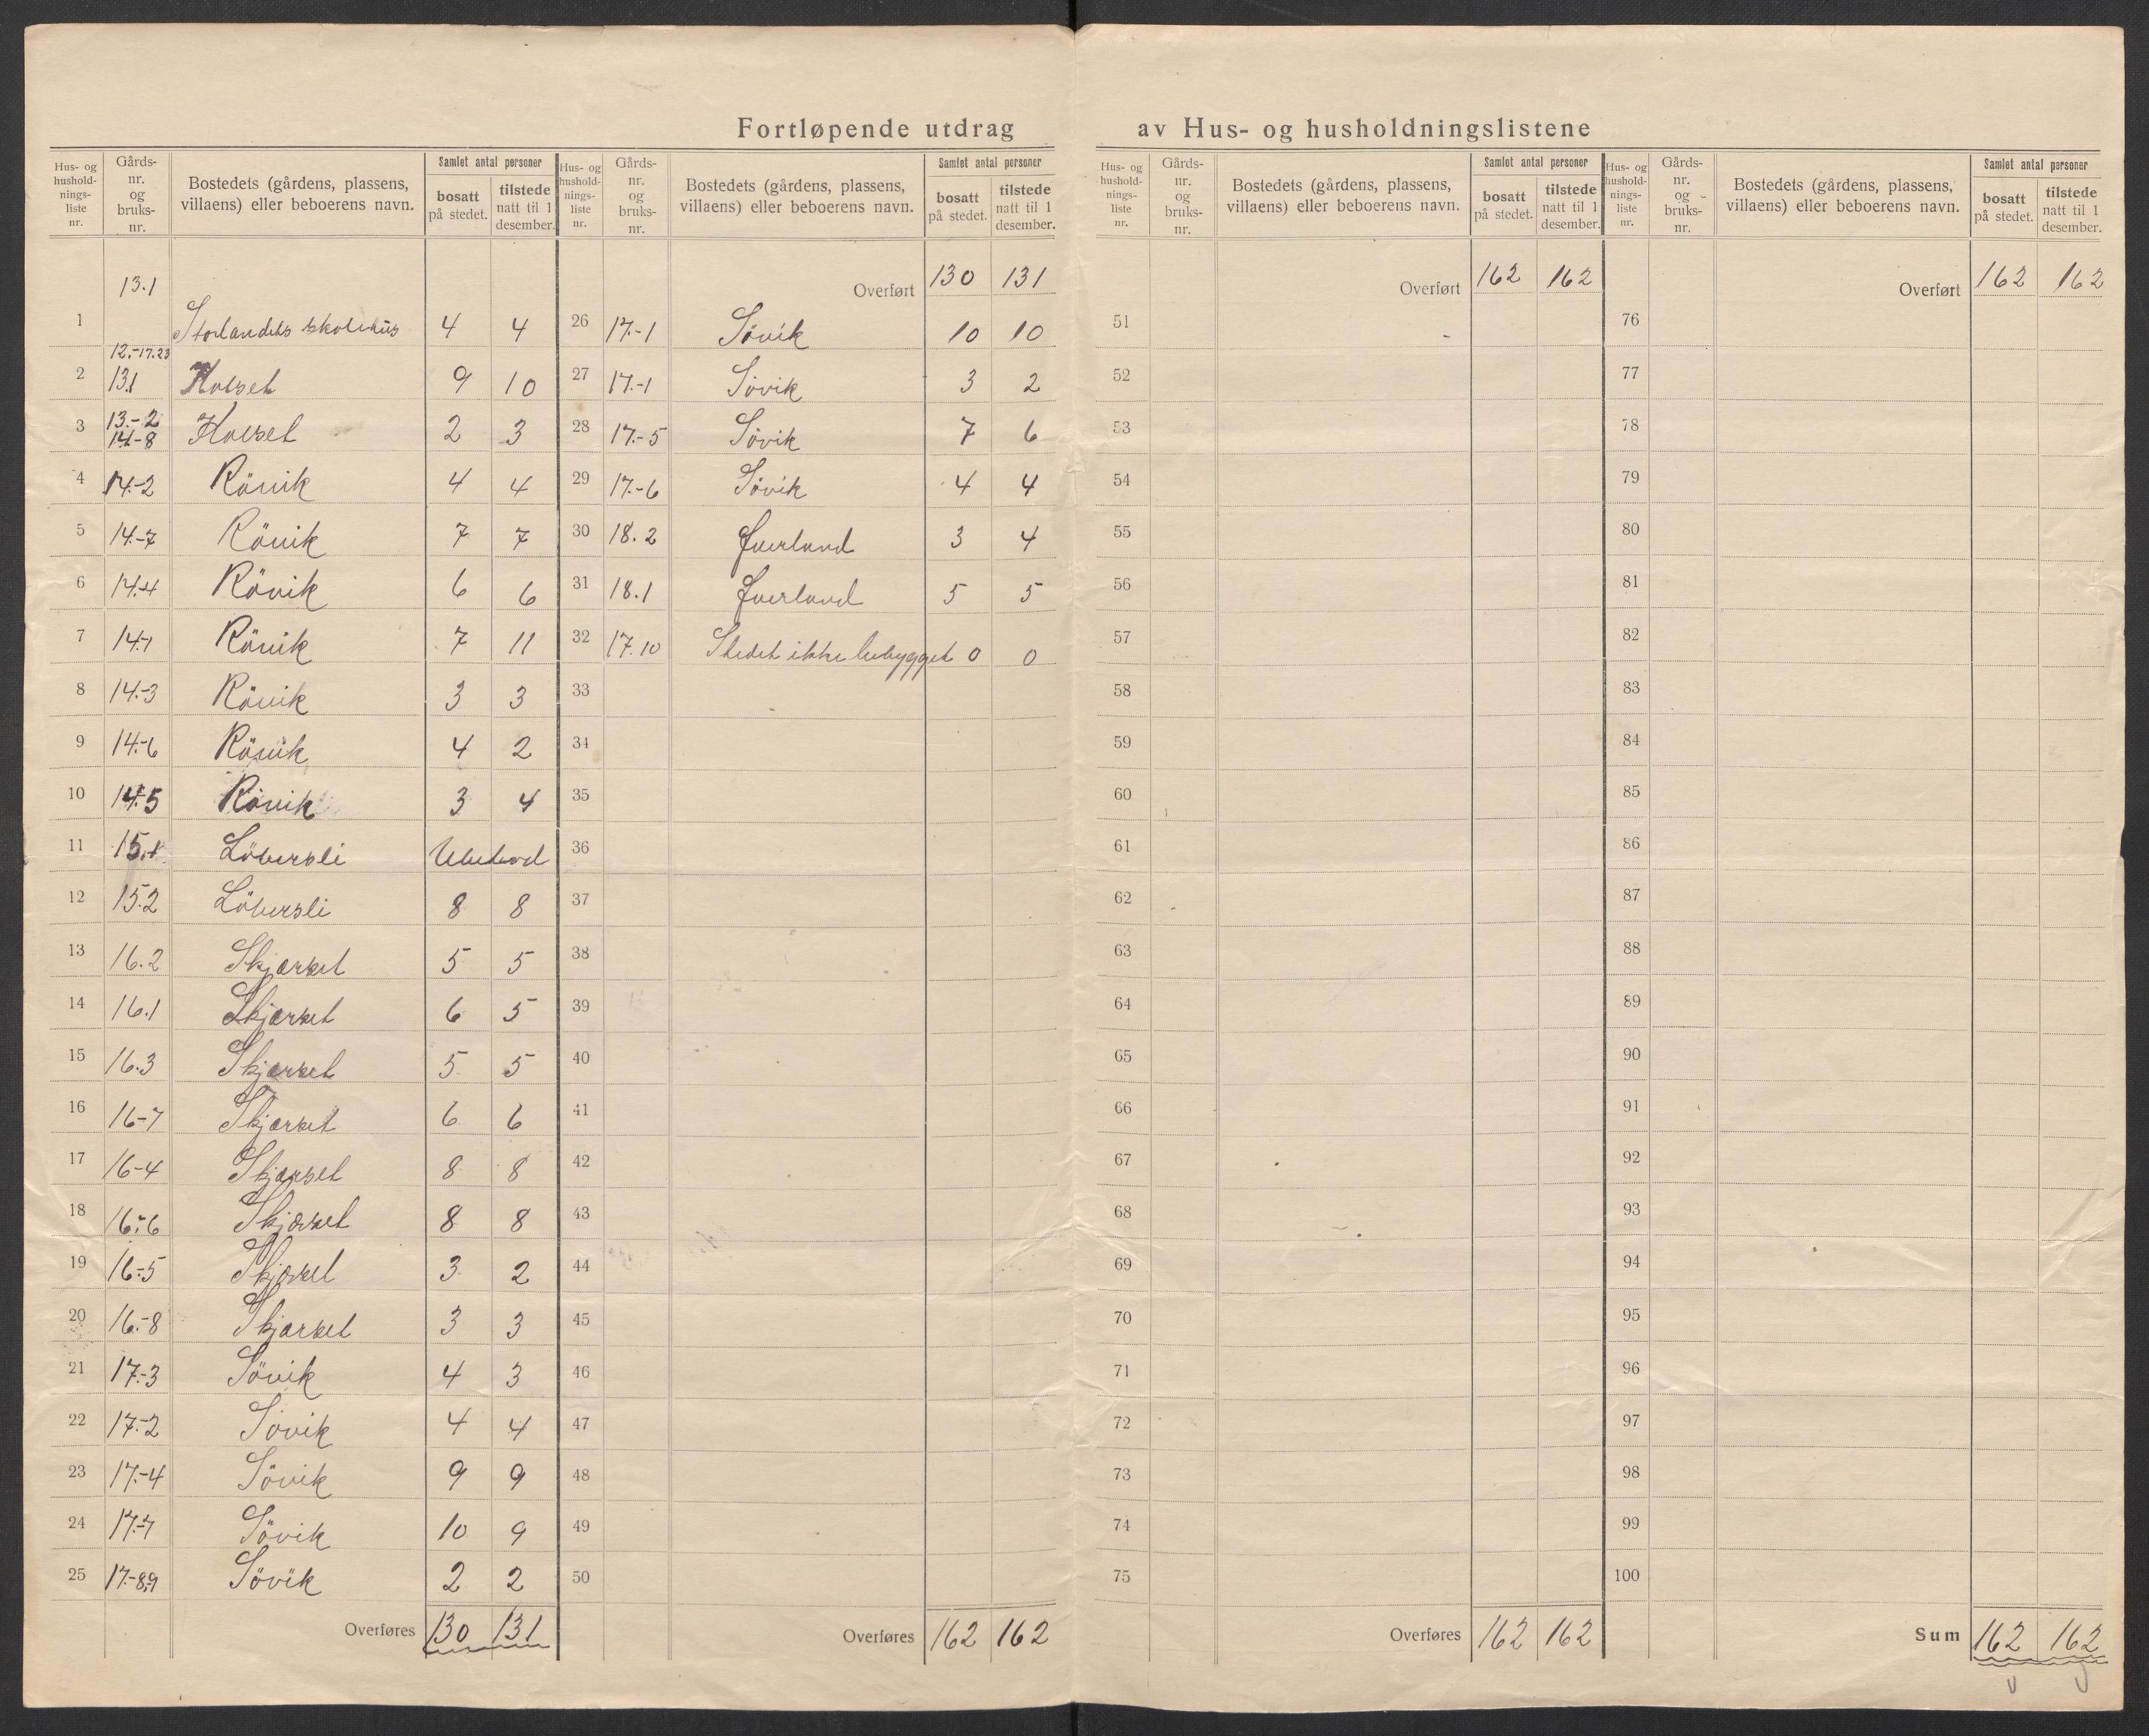 Fortløpende utdrag av Hus- og husholdningslistene
Hus- og husholdnings-liste nr. | Gårds-nr. og bruks-nr. | Bostedets (gårdens, plassens, villaens) eller beboerens navn. | Samlet antal personer | bosatt på stedet. | tilstede natt til 1 desember.
13.1
1 Storlandets skolehus 4 4
12.-17.23
2 13.1 Holset 9 10
3 13.-2 14-8 Holset 2 3
4 14.-2 Rövik 4 4
5 14.-7 Rövik 7 7
6 14.-4 Rövik 6 6
7 14.-1 Rövik 7 11
8 14.-3 Rövik 3 3
9 14.-6 Rövik 4 2
10 14.-5 Rövik 3 4
11 15.1 Löversli Ubebod
12 15.2 Löversli 8 8
13 16.2 Skjærset 5 5
14 16.1 Skjærset 6 5
15 16.3 Skjærset 5 5
16 16-7 Skjærset 6 6
17 16-4 Skjærset 8 8
18 16.-6 Skjærset 8 8
19 16.-5 Skjærset 3 2
20 16.-8 Skjærset 3 3
21 17.-3 Sövik 4 3
22 17.-2 Sövik 4 4
23 17.-4 Sövik 9 9
24 17.-7 Sövik 10 9
25 17.-8,9 Sövik 2 2
Overføres 130 131
Hus- og husholdnings-liste nr. | Gårds-nr. og bruks-nr. | Bostedets (gårdens, plassens, villaens) eller beboerens navn. | Samlet antal personer | bosatt på stedet. | tilstede natt til 1 desember.
Overført 130 131
26 17.-1 Sövik 10 10
27 17.-1 Sövik 3 2
28 17.-5 Sövik 7 6
29 17.-6 Sövik 4 4
30 18.2 Øverland 3 4
31 18.1 Øverland 5 5
32 17.10 Stedet ikke bebygget 0 0
33
34
35
36
37
38
39
40
41
42
43
44
45
46
47
48
49
50
Overføres 162 162
Hus- og husholdnings-liste nr. | Gårds-nr. og bruks-nr. | Bostedets (gårdens, plassens, villaens) eller beboerens navn. | Samlet antal personer | bosatt på stedet. | tilstede natt til 1 desember.
Overført 162 162
51
52
53
54
55
56
57
58
59
60
61
62
63
64
65
66
67
68
69
70
71
72
73
74
75
Overføres 162 162
Hus- og husholdnings-liste nr. | Gårds-nr. og bruks-nr. | Bostedets (gårdens, plassens, villaens) eller beboerens navn. | Samlet antal personer | bosatt på stedet. | tilstede natt til 1 desember.
Overført 162 162
76
77
78
79
80
81
82
83
84
85
86
87
88
89
90
91
92
93
94
95
96
97
98
99
100
Sum 162 162